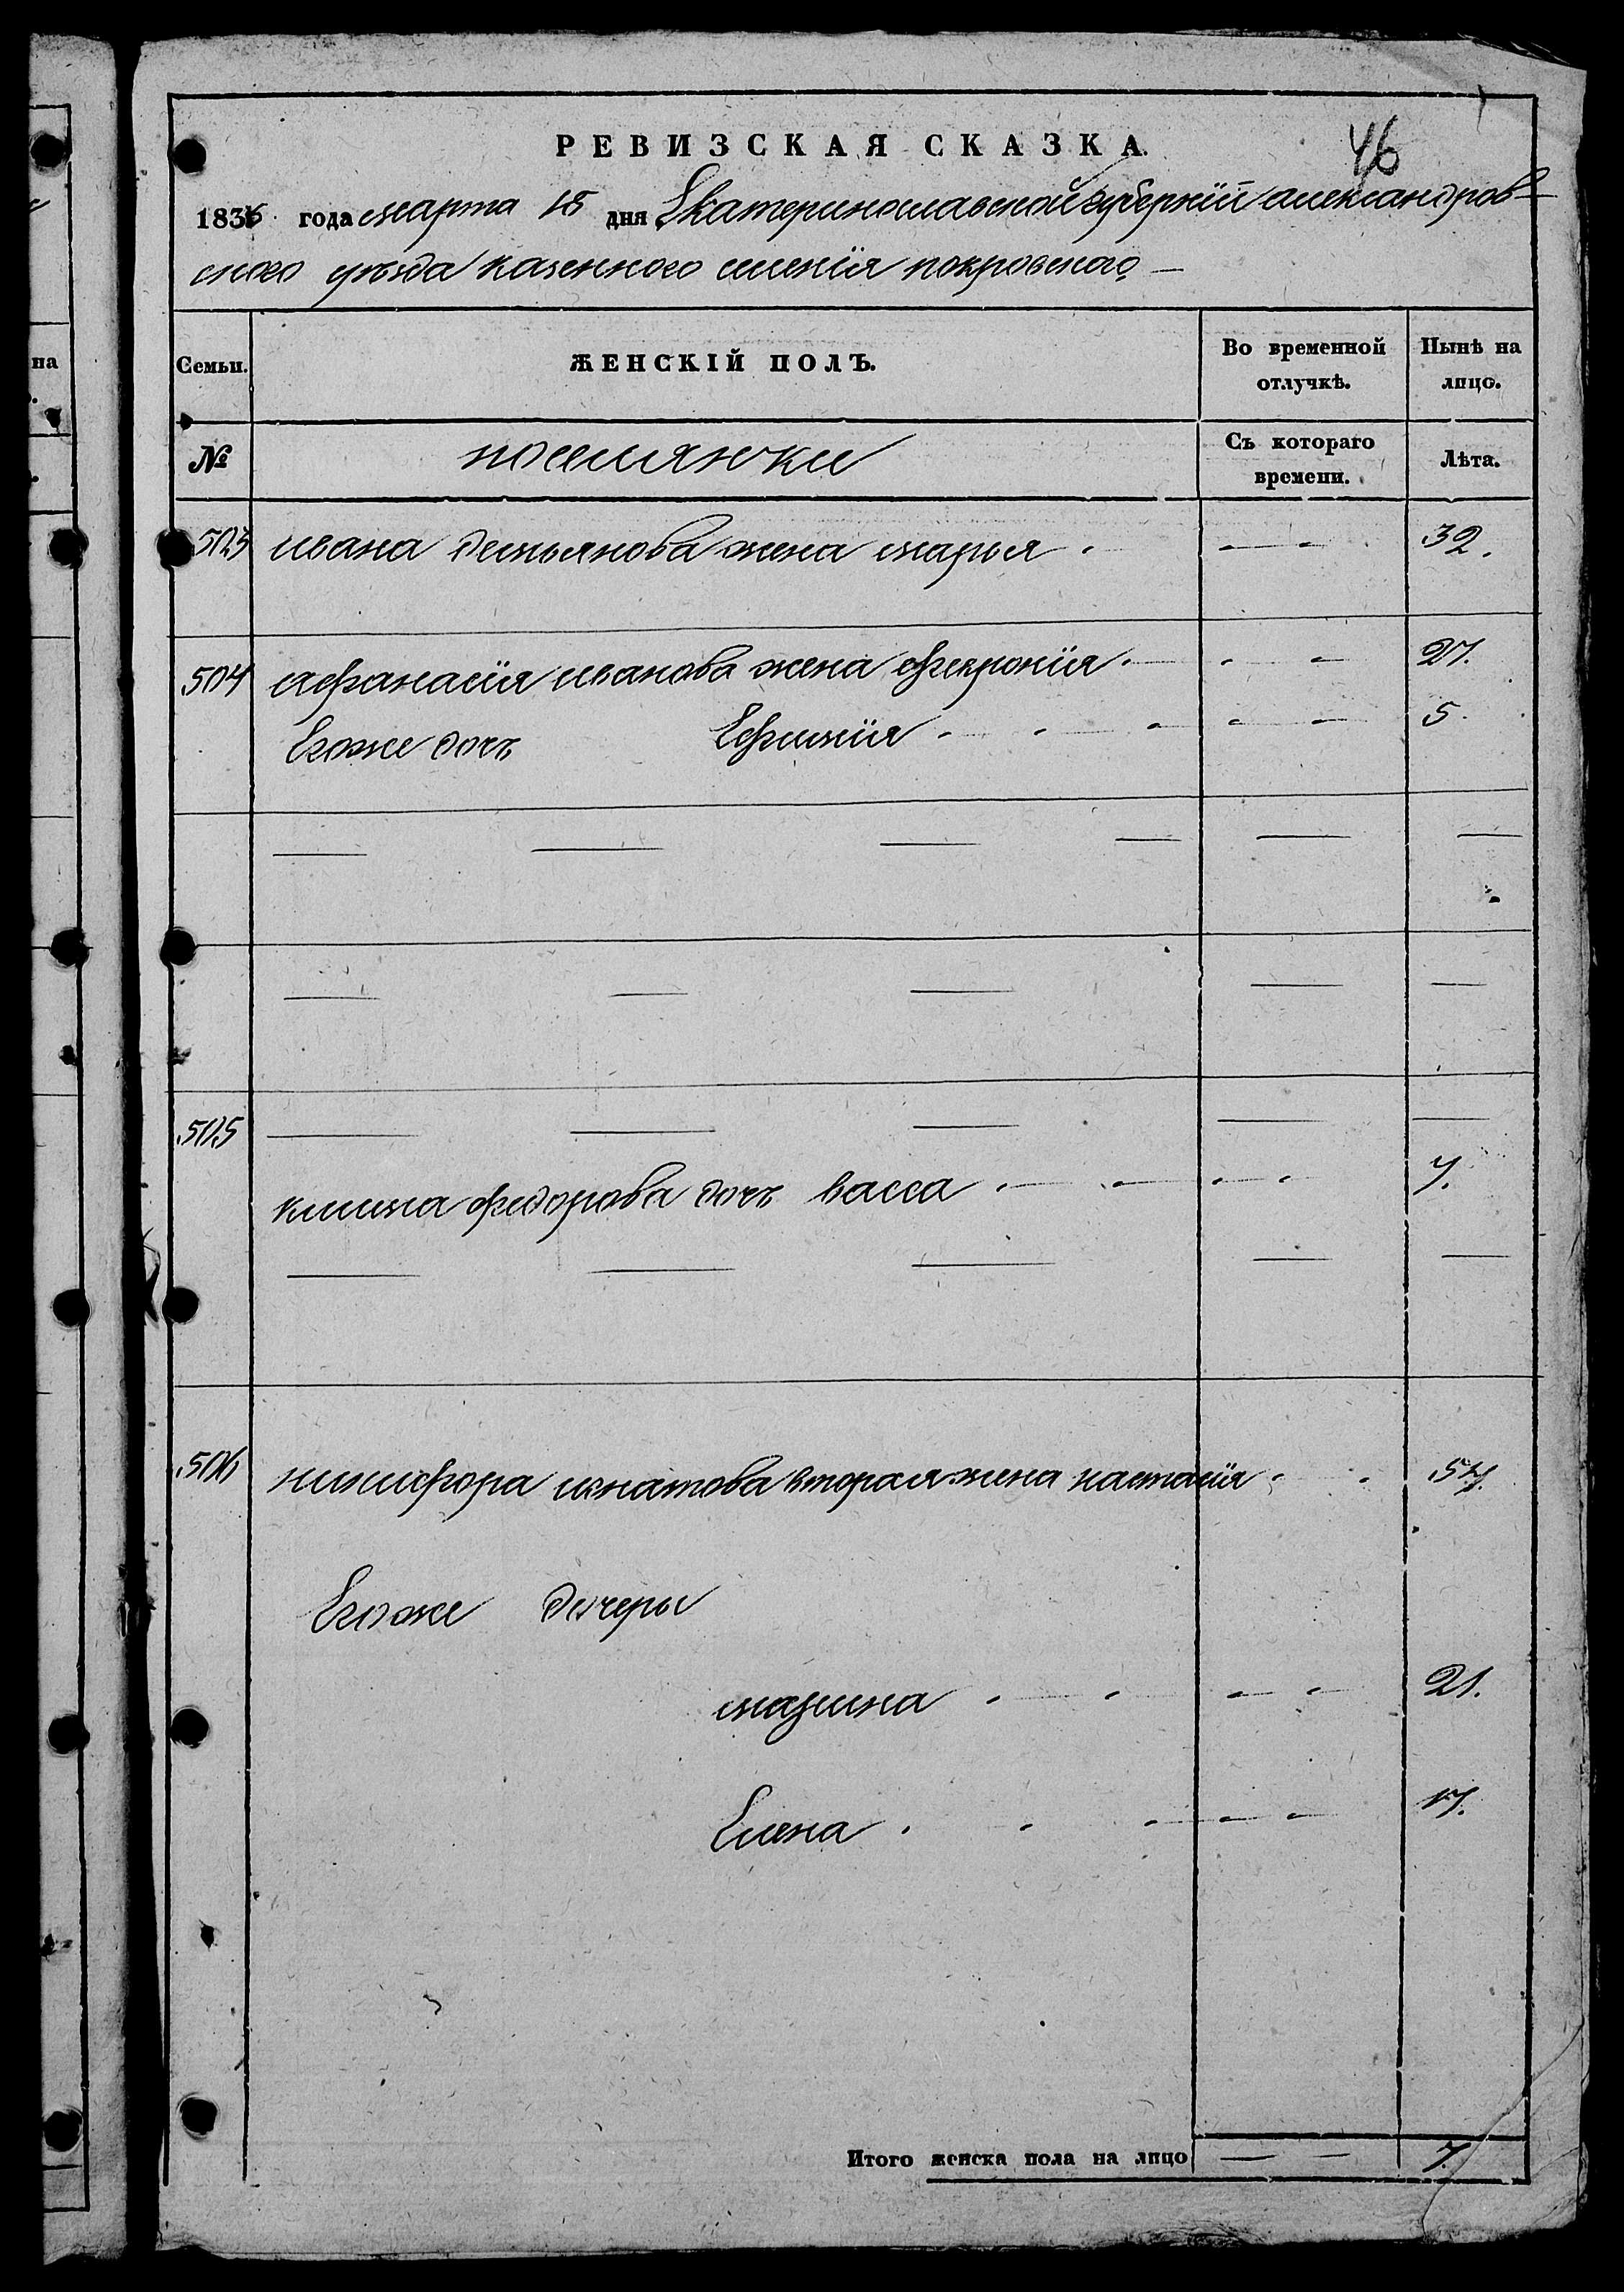 РЕВИЗСКАЯ СКАЗКА.
46
1836 года марта 15 дня Екатеринославской губернїи александров-
ского уѣзда казенного селенїя покровского
Семьи.
ЖЕНСКІЙ ПОЛЪ.
Во временной отлучкѣ.
Нынѣ на лицо.
№
поселянки
Съ котораго времени.
Лѣта.
503 ивана демьянова жена марья 32.
504 афанасїя иванова жена феврониїя 27.
Егоже дочь Ефимїя 5.
505
клима федорова дочь васса 7.
506 никифора игнатова вторая жена настасїя 57.
Егоже дочеры
марина 21.
Елена 17.
Итого женска пола на лицо 7.